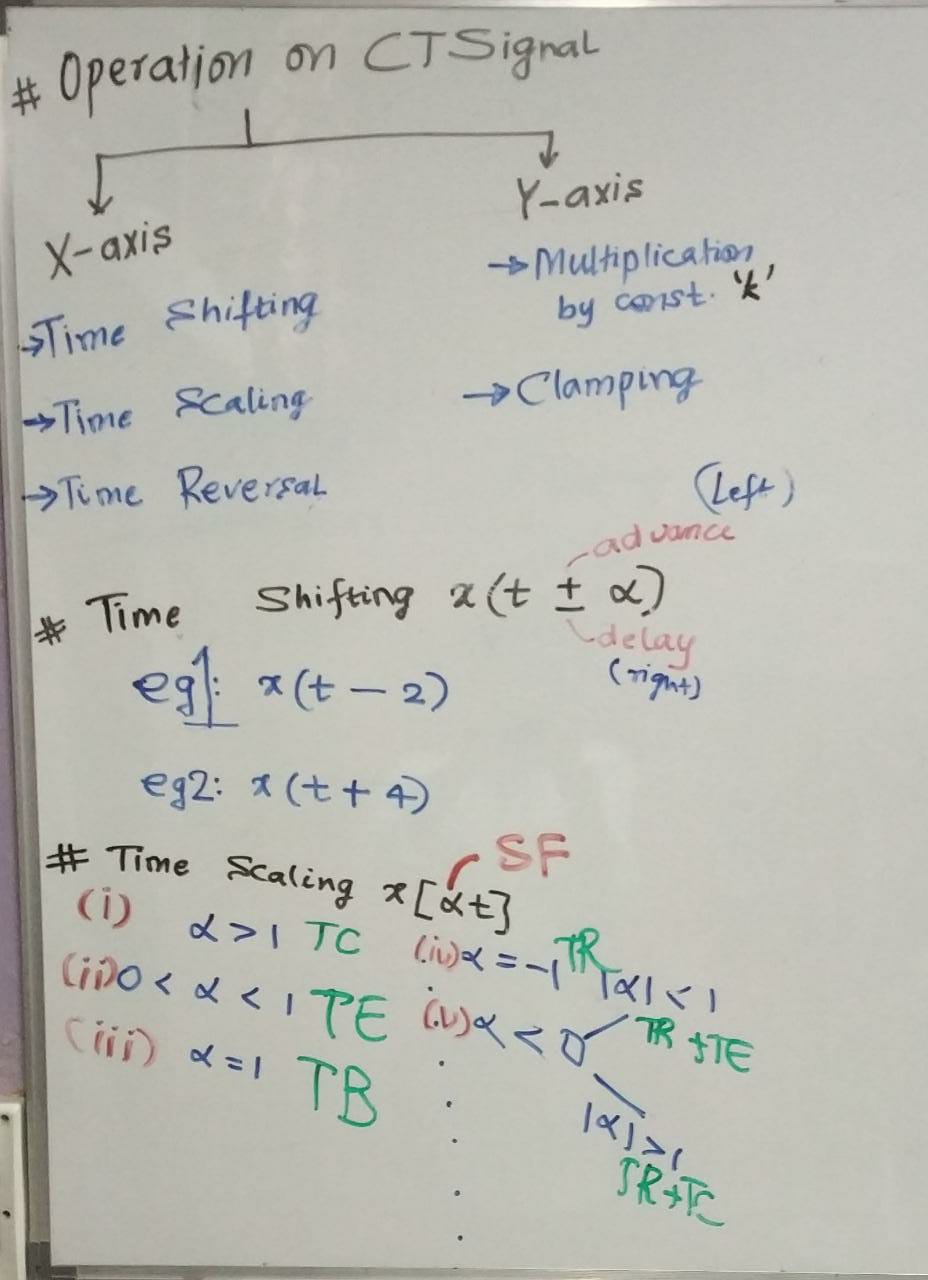 # Operation on CT Signal
X-axis
→Time Shifting
→Time Scaling
→Time Reversal
Y-axis
→Multiplication
by const. 'k'
→Clamping
(Left)
advance
# Time Shifting x(t ± α)
delay
(right)
eg1: x(t − 2)
eg2: x(t + 4)
SF
# Time Scaling x[αt]
(i) α > 1 TC
(ii) 0 < α < 1 TE
(iii) α = 1 TB
(iv) α = -1 TR
(v) α < 0
|α| < 1
TR + TE
|α| > 1
TR + TC